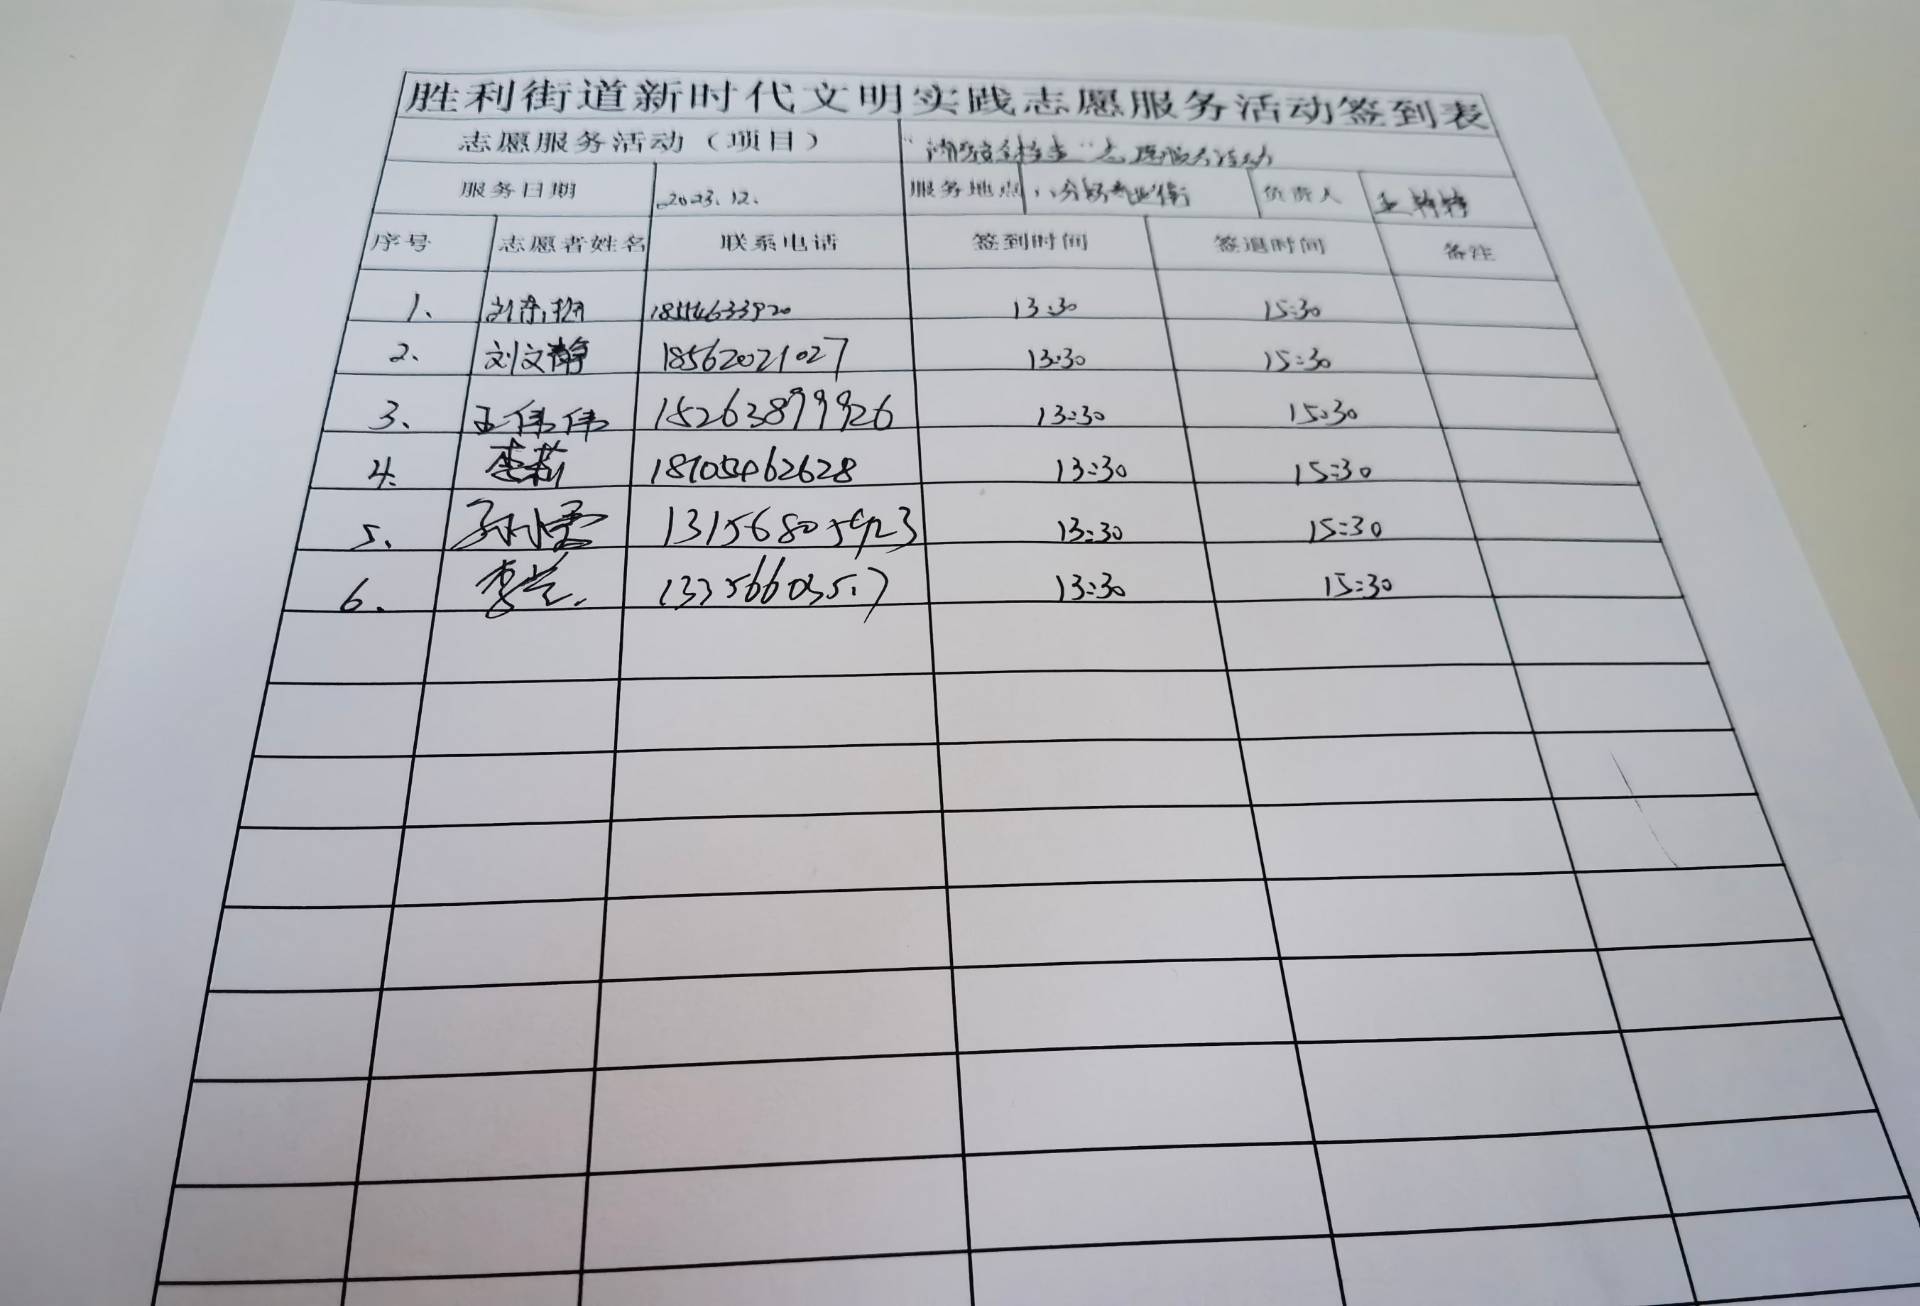 胜利街道新时代文明实践志愿服务活动签到表
志愿服务活动（项目） “消防安全检查”志愿服务活动
服务日期 2023.12. 服务地点 八分场商业街 负责人 王
序号 志愿者姓名 联系电话 签到时间 签退时间 备注
1. 刘 13:30 15:30
2. 刘文静 18562021027 13:30 15:30
3. 王伟伟 15263899926 13:30 15:30
4. 李莉 13:30 15:30
5. 孙 13:30 15:30
6. 李 13:30 15:30